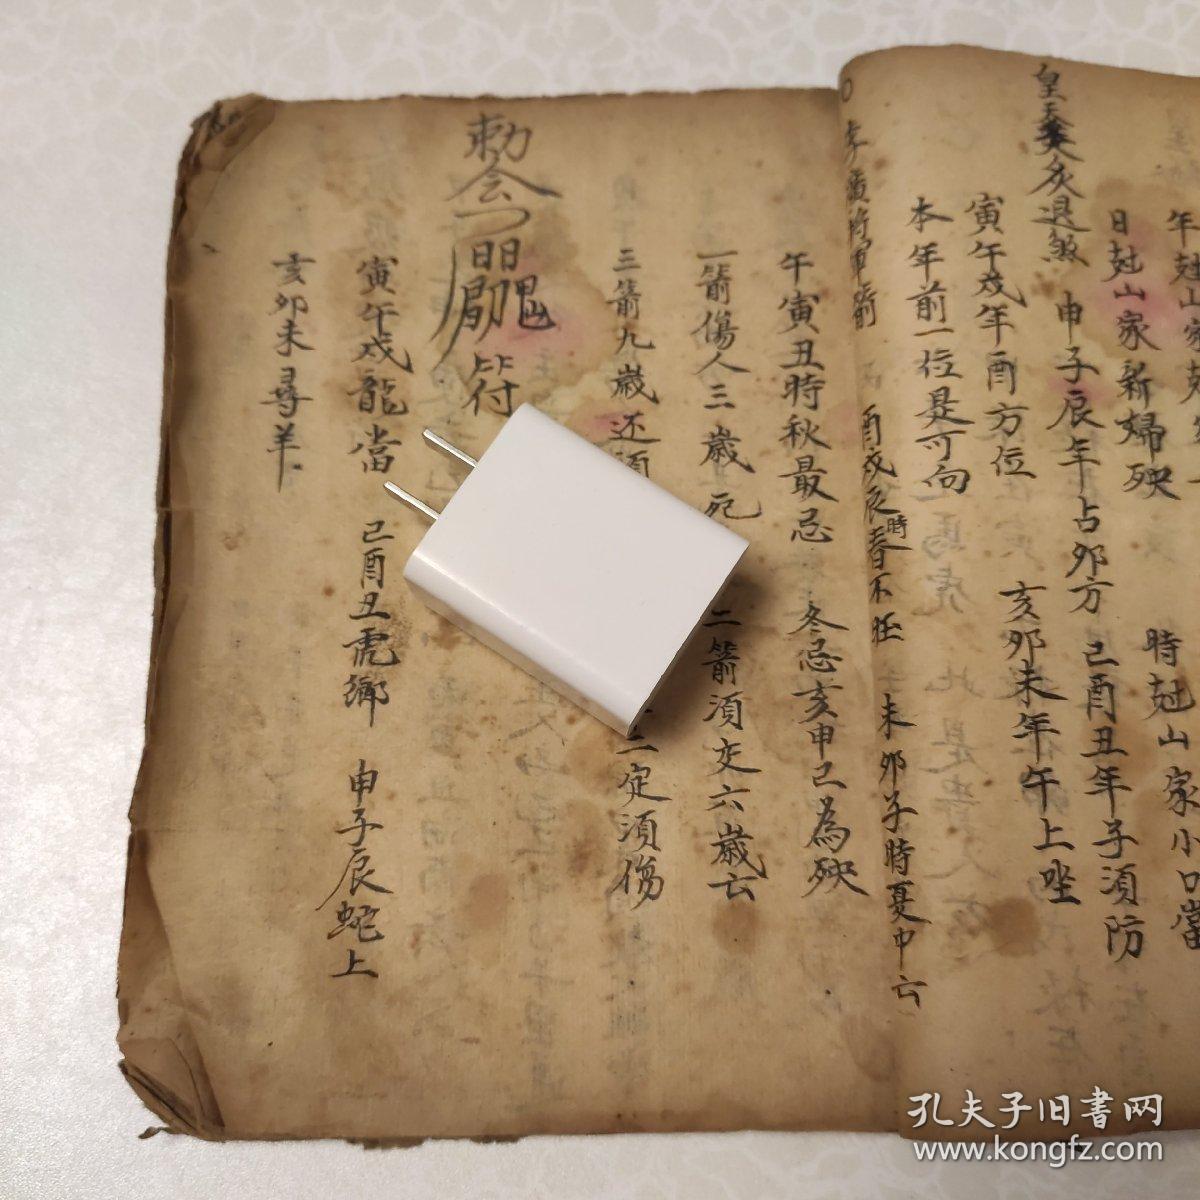 年尅山家
日尅山家新婦殃
時尅山家小口當
皇天灸退煞 申子辰年占卯方 己酉丑年子須防
寅午戌年酉方位 亥卯未年午上坐
本年前一位是可向
李廣將軍箭 酉戌辰時春不旺 未卯子時夏中亡
午寅丑時秋最忌 冬忌亥申巳為殃
一箭傷人三歲死 二箭須交六歲亡
三箭九歲还須 二定須傷
勅令 符
寅午戌龍當 己酉丑虎鄉 申子辰蛇上
亥卯未尋羊
孔夫子旧書网
www.kongfz.com